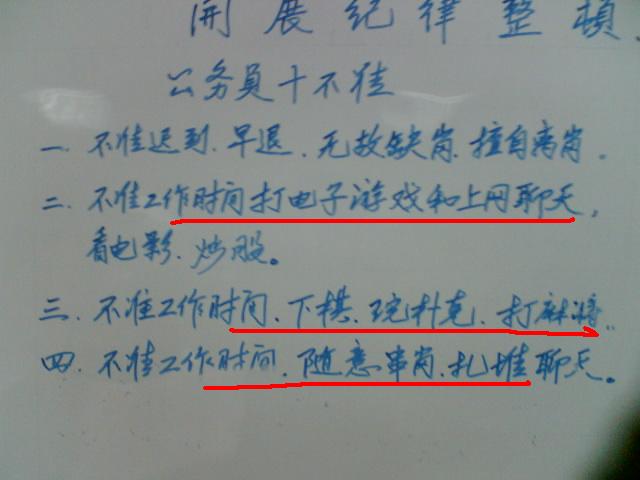 開展纪律整頓
公务員十不准
一.不准迟到.早退.无故缺岗.擅自离岗.
二.不准工作时间打电子游戏和上网聊天,
看电影.炒股。
三.不准工作时间.下棋.玩扑克.打麻将.
四.不准工作时间.随意串岗.扎堆聊天。